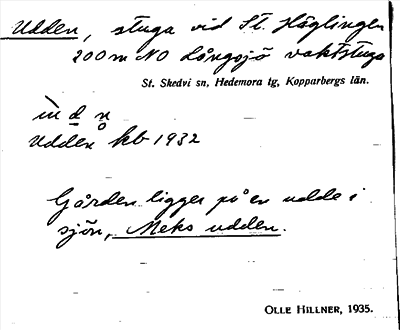 Udden, stuga vid St. Häglingen
200 m NO Långsjö vaktstuga
St. Skedvi sn, Hedemora tg, Kopparbergs län.
Udden kb 1932
Gården ligger på en udde i
sjön, Meks udden.
OLLE HILLNER, 1935.